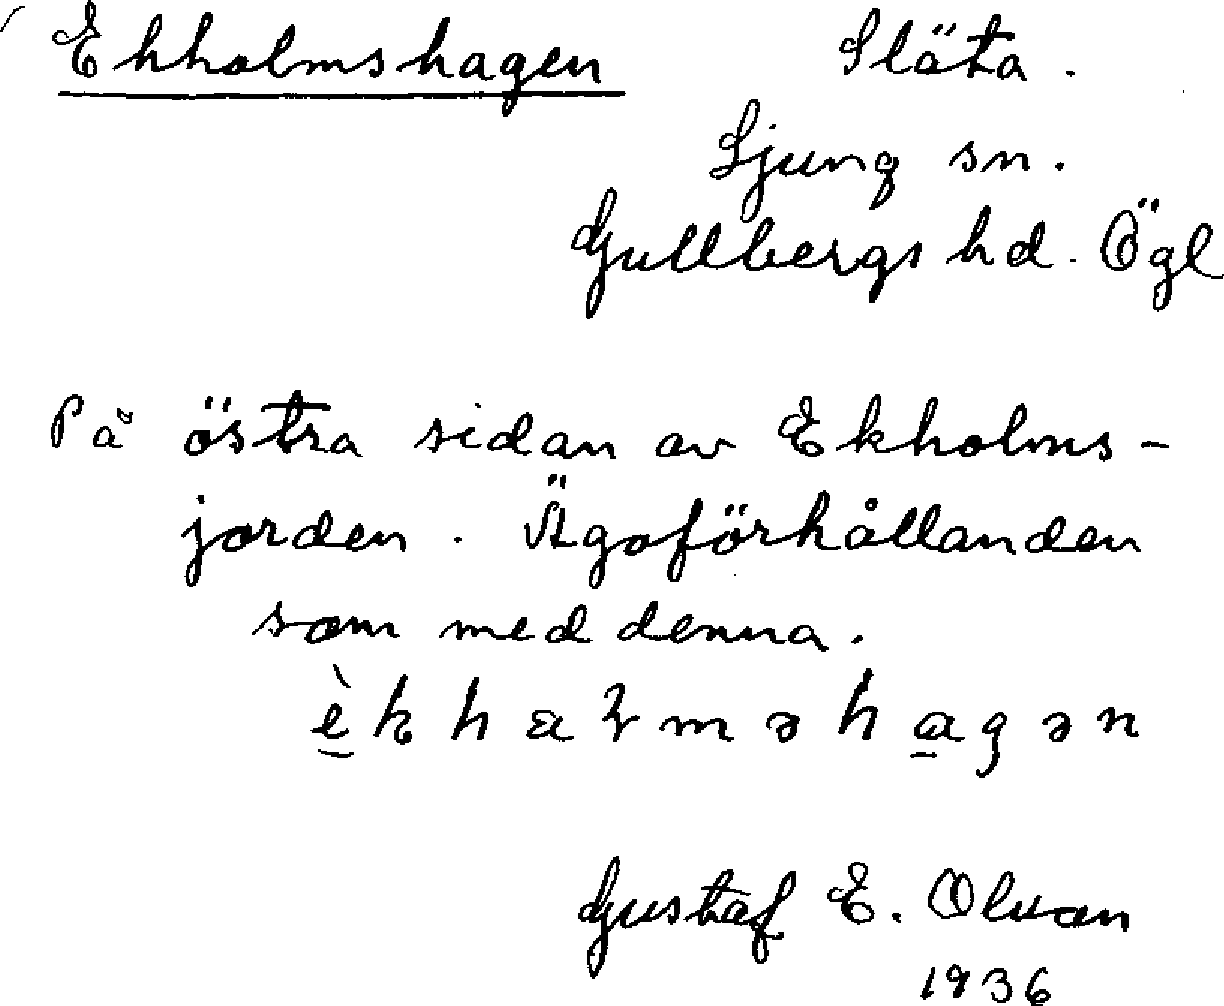 Ekholmshagen Släta.
Ljung sn.
Gullbergs hd. Ögl
På östra sidan av Ekholms-
jorden. Ägoförhållanden
som med denna.
Gustaf E.
1936